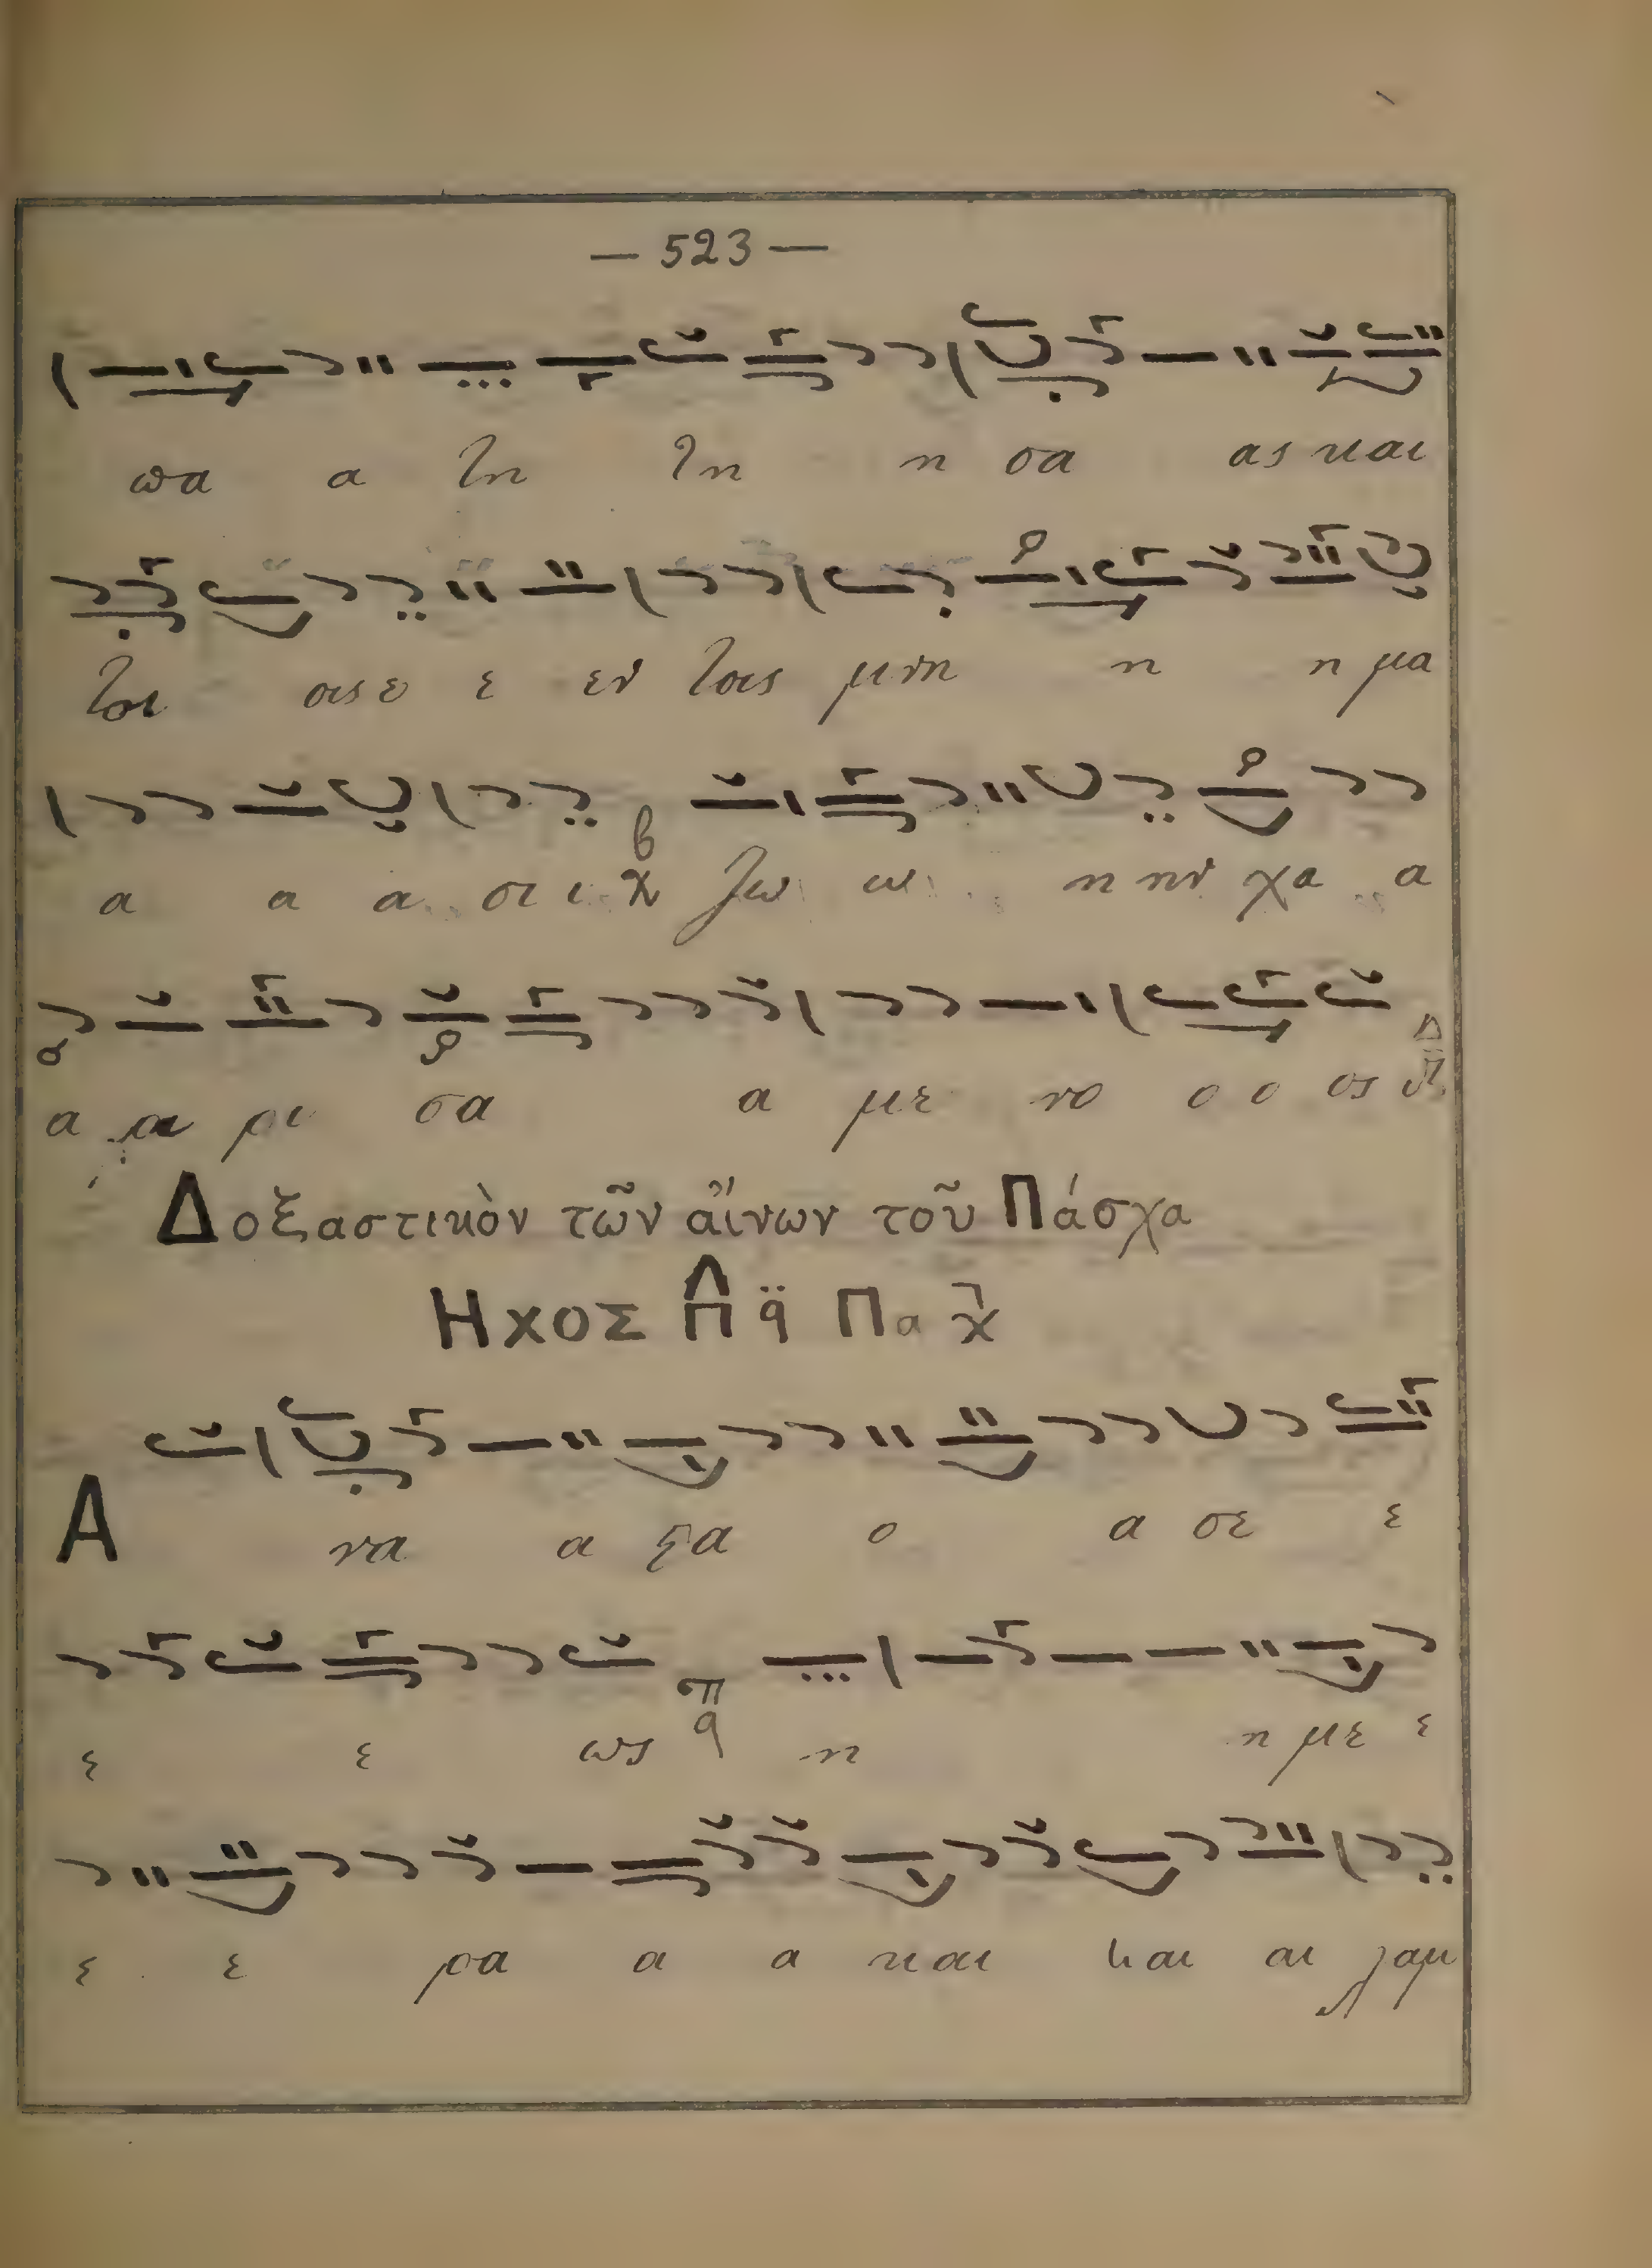 — 523 —
πα α τη τη η σα ας και
τοι οις ε ε εν τοις μνη η η μα
α α α σι ι ζω ω η ην χα α
α ρι σα α με νο ο ο ος
Δοξαστικὸν τῶν αἴνων τοῦ Πάσχα
Ηχος Πα
Α να α ϛα α σε ε
ε ε ως η η με ε
ε ε ρα α α και και αι λαμ